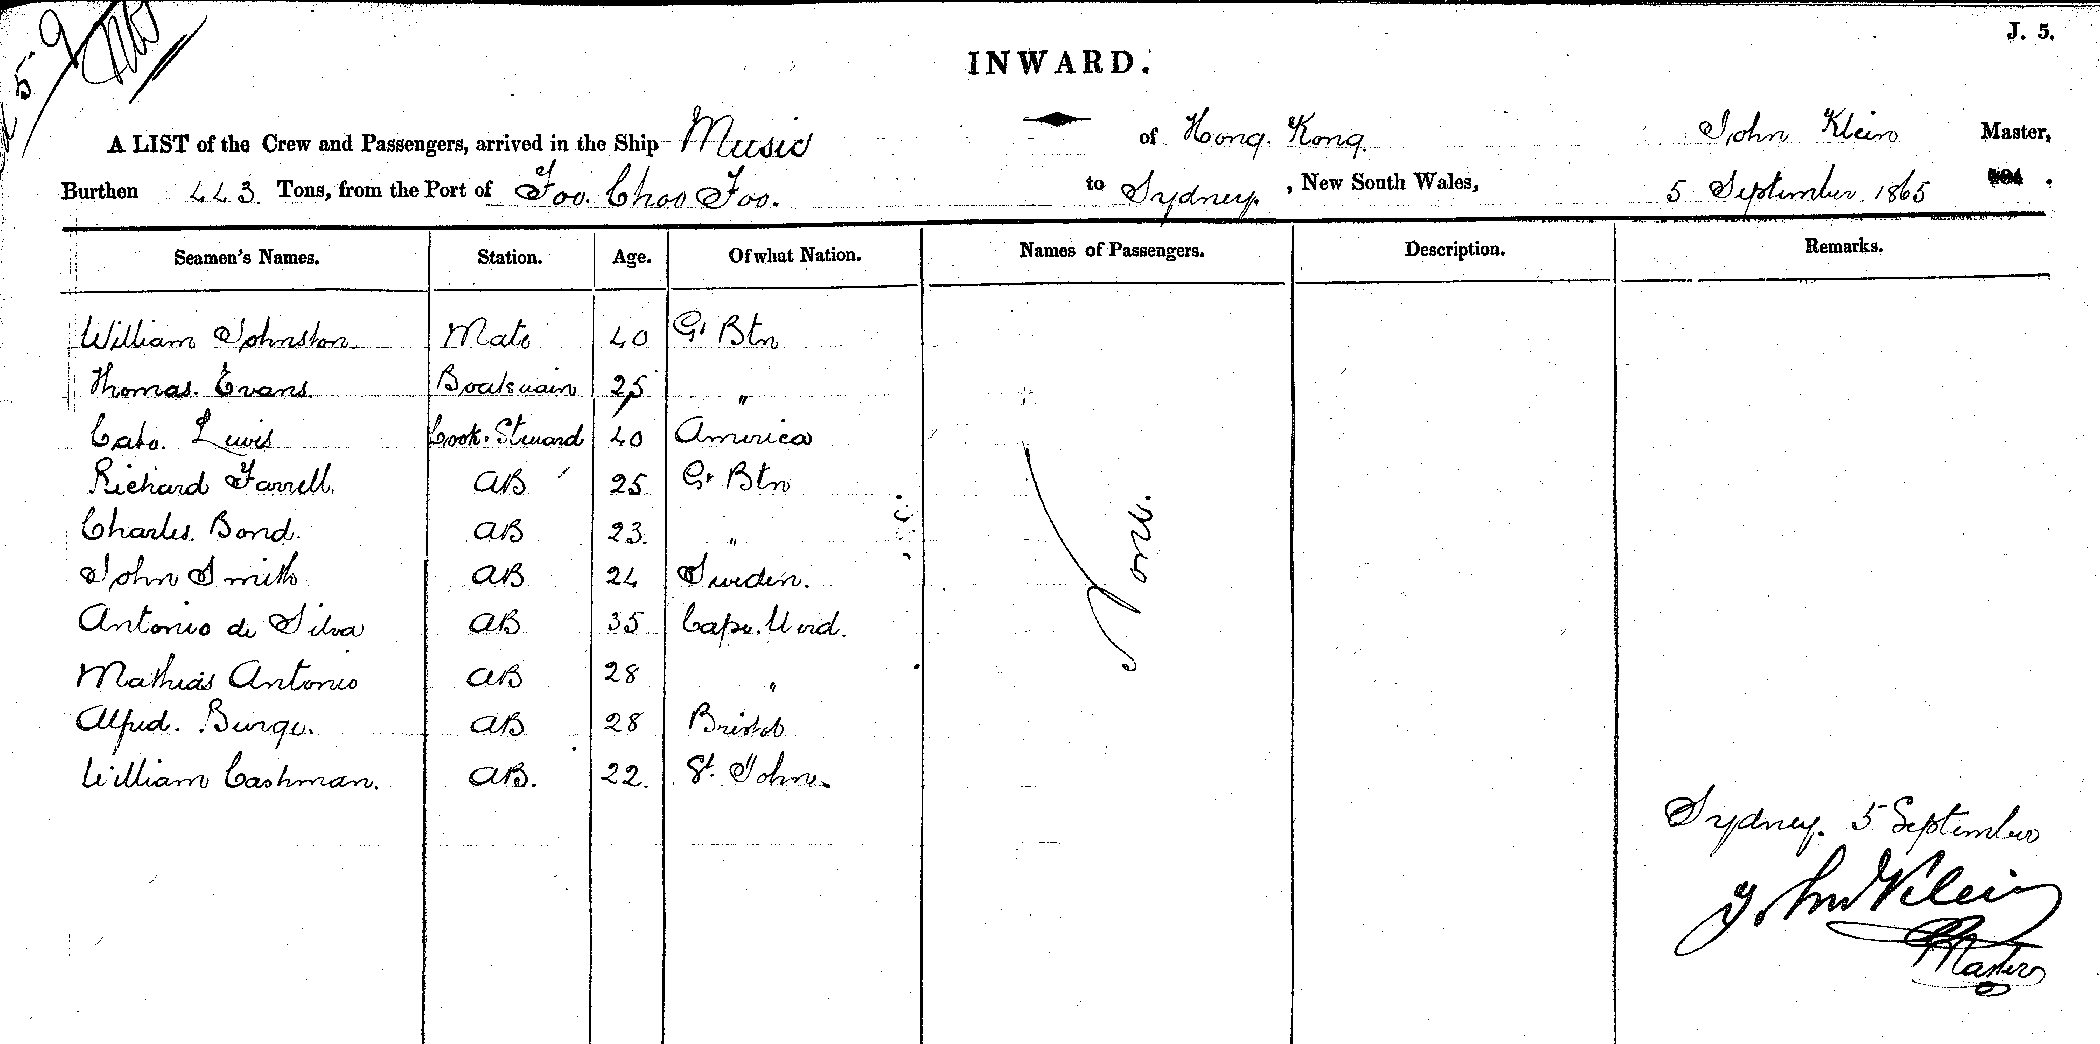 J. 5.
INWARD.
A LIST of the Crew and Passengers, arrived in the Ship Music of Hong. Kong. John Klein Master,
Burthen 443 Tons, from the Port of Foo. Choo Foo. to Sydney. , New South Wales, 5 September 1865
Seamen's Names. Station. Age. Of what Nation. Names of Passengers. Description. Remarks.
William Johnston Mate 40 Gt Btn
Thomas. Evans. Boatswain 25 "
Cato. Lewis Cook. Steward 40 America
Richard Farrell. AB 25 Gt Btn
Charles. Bond. AB 23. "
John Smith AB 24 Sweden.
Antonio de Silva AB 35 Cape. Verd.
Mathias Antonio AB 28 "
Alfred. Burge. AB 28 Bristol
William Cashman. AB. 22. St. John.
None.
Sydney. 5 September
John Klein
Master